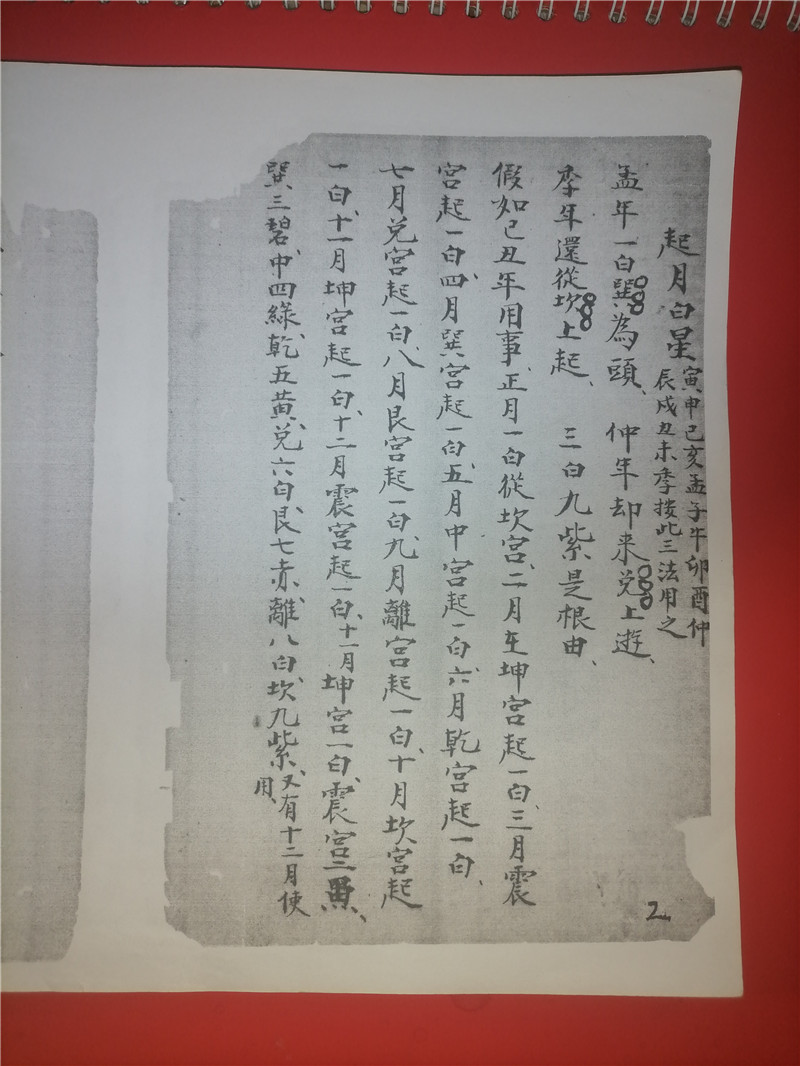 起月白星 寅申巳亥孟子午卯酉仲
辰戌丑未季按此三法用之
孟年一白巽為頭、仲年却来兑上遊、
季年還從坎上起、三白九紫是根由、
假如己丑年用事、正月一白從坎宫、二月在坤宫起一白、三月震
宫起一白、四月巽宫起一白、五月中宫起一白、六月乾宫起一白、
七月兑宫起一白、八月艮宫起一白、九月離宫起一白、十月坎宫起
一白、十一月坤宫起一白、十二月震宫起一白、十一月坤宫一白、震宫二黑、
巽三碧、中四綠、乾五黄、兑六白、艮七赤、離八白、坎九紫、又有十二月使
用、
2